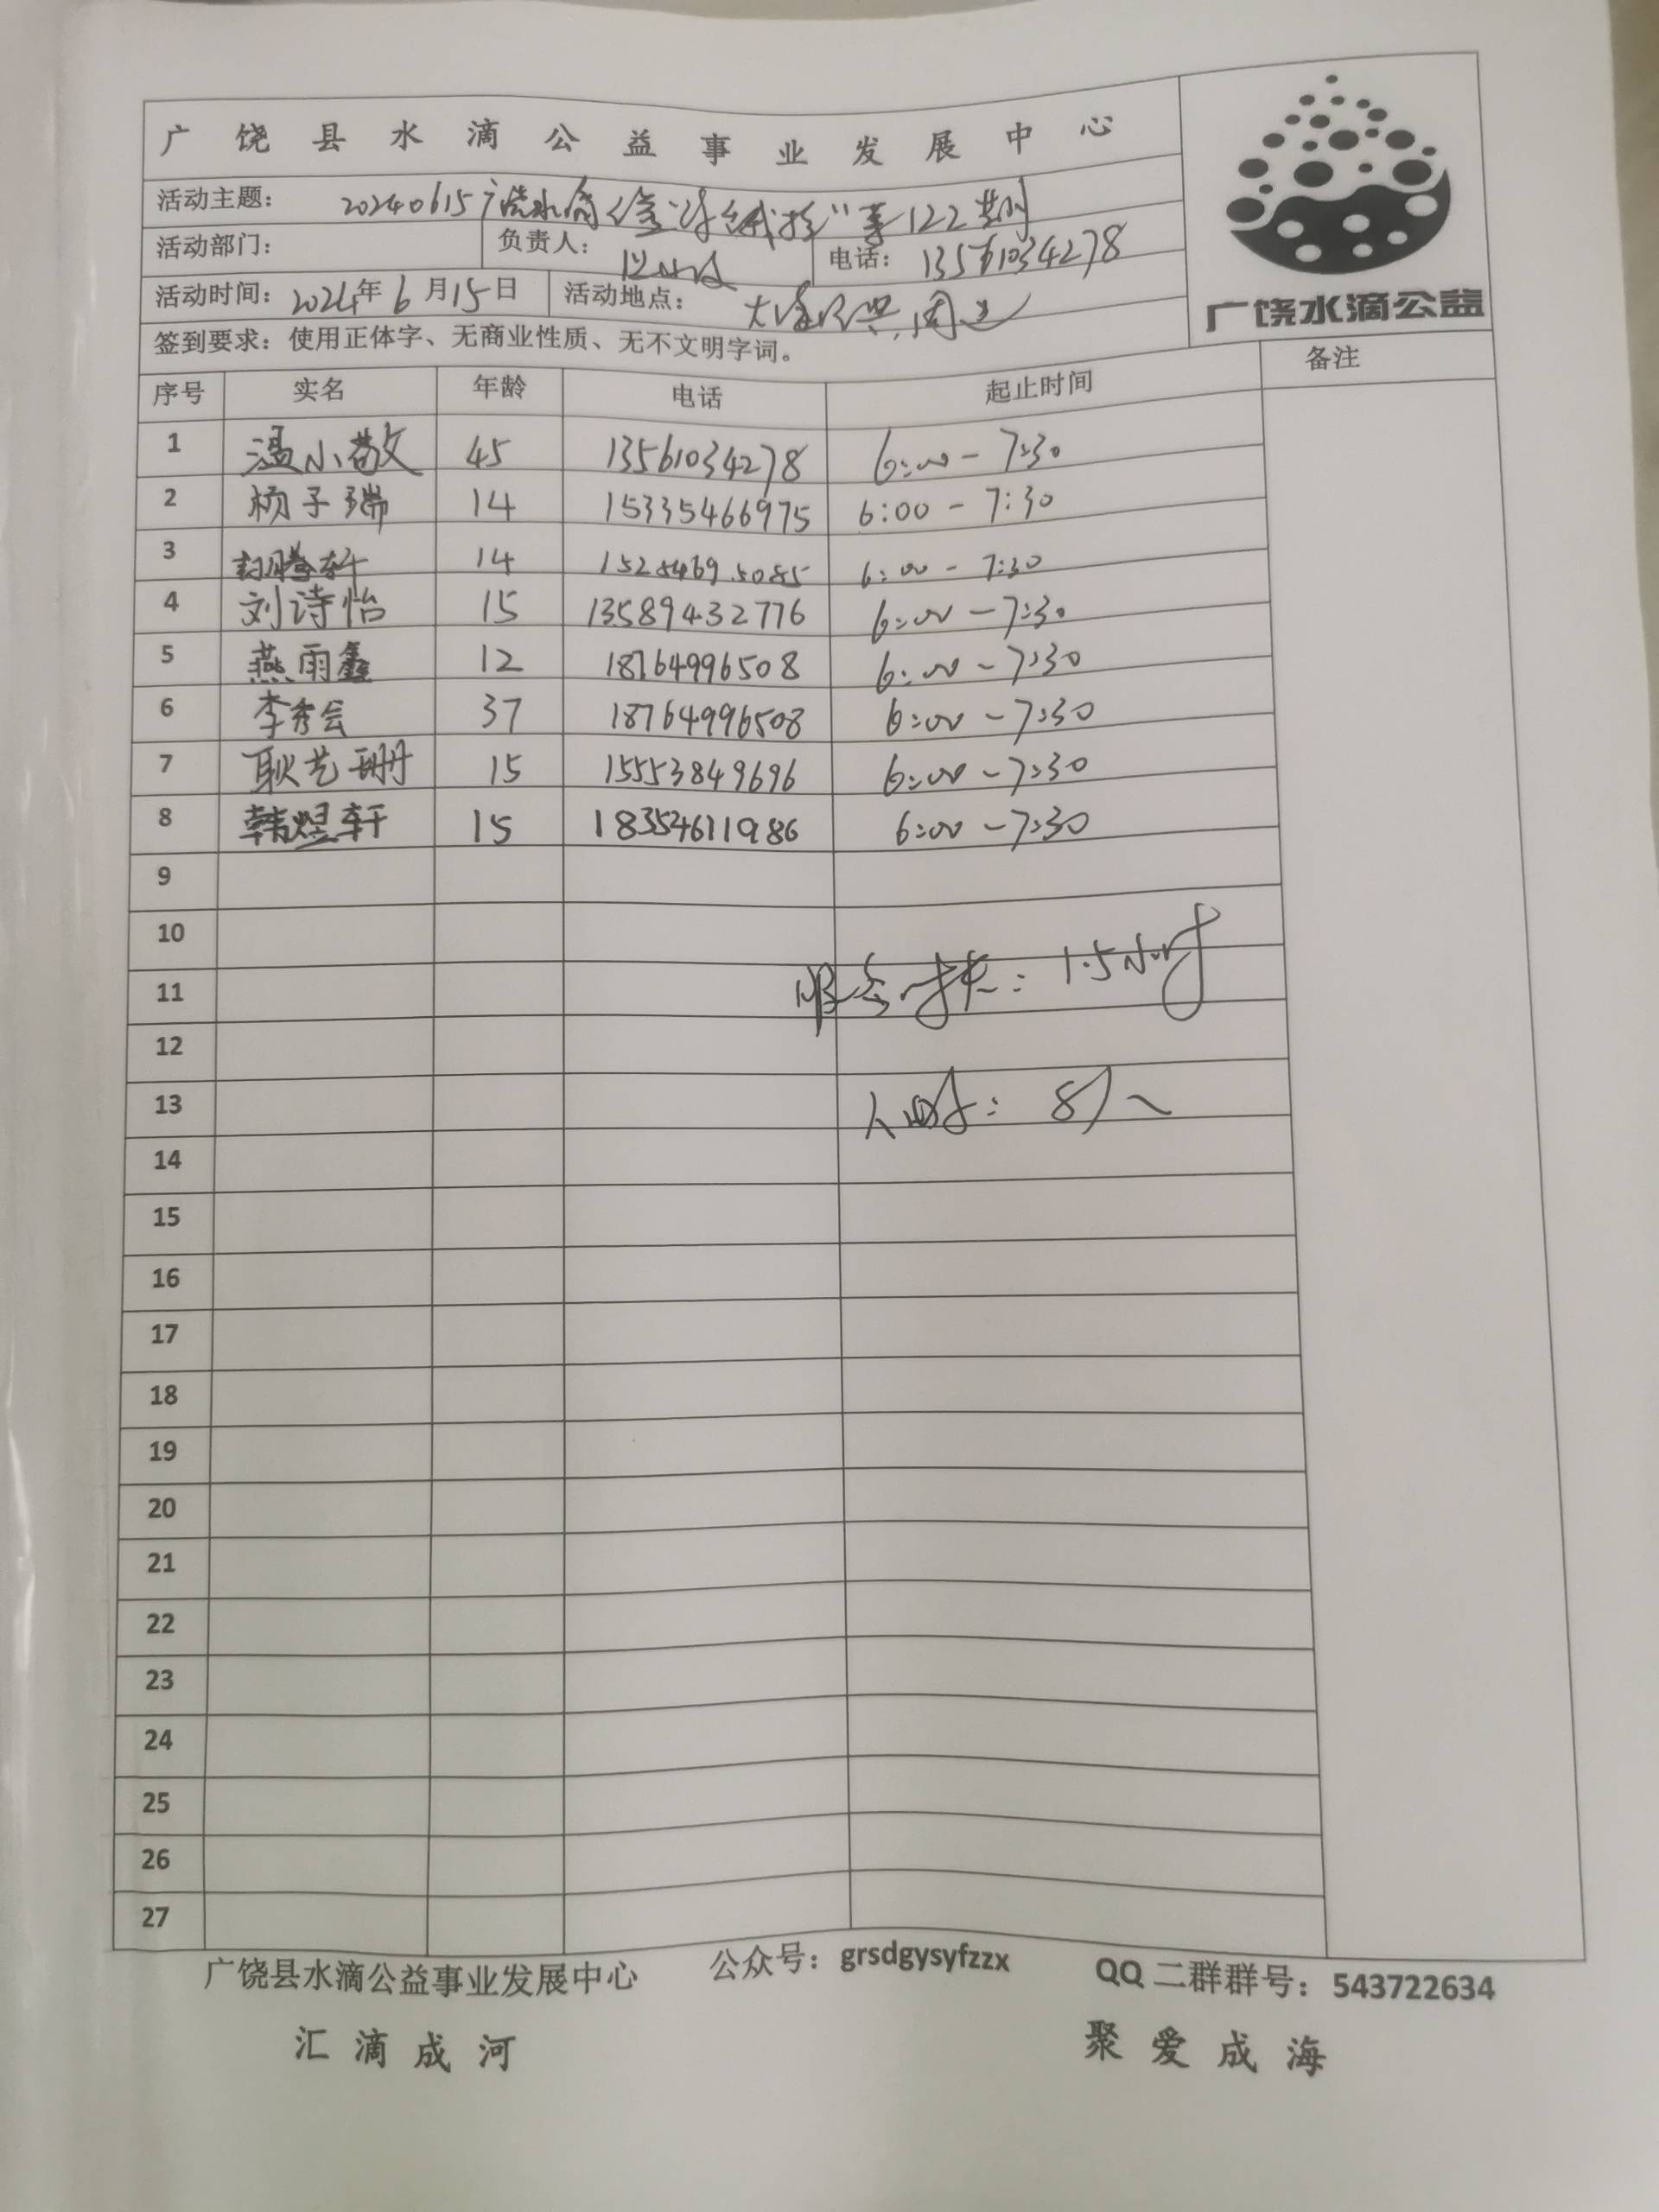 广饶县水滴公益事业发展中心
活动主题: 20240615广饶水滴 第122期
活动部门: 负责人: 电话: 13561034278
活动时间: 2024年6月15日 活动地点: 周边
签到要求: 使用正体字、无商业性质、无不文明字词。
广饶水滴公益
序号 实名 年龄 电话 起止时间 备注
1 温小敬 45 13561034278 6:00-7:30
2 杨子瑞 14 15335466975 6:00-7:30
3 14 6:00-7:30
4 刘诗怡 15 13589432776 6:00-7:30
5 燕雨鑫 12 18764996508 6:00-7:30
6 李秀会 37 18764996508 6:00-7:30
7 耿艺珊 15 15553849696 6:00-7:30
8 韩煜轩 15 18354611986 6:00-7:30
9
10
11 服务时长: 1.5小时
12
13 人 : 8人
14
15
16
17
18
19
20
21
22
23
24
25
26
27
广饶县水滴公益事业发展中心 公众号: grsdgysyfzzx QQ二群群号: 543722634
汇滴成河 聚爱成海